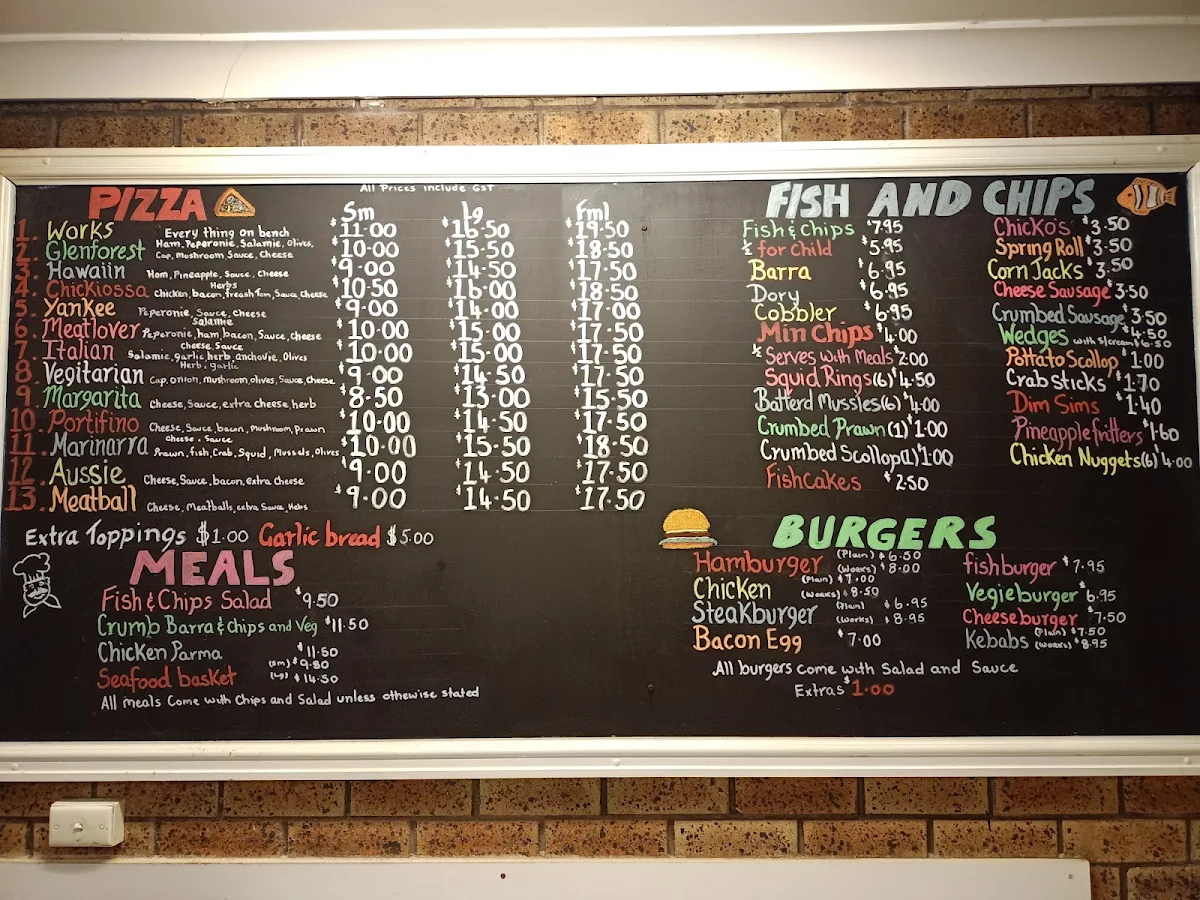 All Prices include GST
PIZZA
Sm lg Fml
1. Works Every thing on bench $11.00 $16.50 $19.50
2. Glenforest Ham, Peperonie, Salamie, Olives, Cap, Mushroom, Sauce, Cheese $10.00 $15.50 $18.50
3. Hawaiin Ham, Pineapple, Sauce, Cheese $9.00 $14.50 $17.50
4. Chickiossa Herbs chicken, bacon, freash Tom, Sauce, Cheese $10.50 $16.00 $18.50
5. Yankee Peperonie, Sauce, Cheese $9.00 $14.00 $17.00
6. Meatlover Salamie Peperonie, ham, bacon, Sauce, cheese $10.00 $15.00 $17.50
7. Italian Cheese, Sauce Salamie, garlic, herb, anchovie, Olives $10.00 $15.00 $17.50
8. Vegitarian Herb, garlic Cap, onion, mushroom, olives, Sauce, Cheese $9.00 $14.50 $17.50
9. Margarita Cheese, Sauce, extra cheese, herb $8.50 $13.00 $15.50
10. Portifino Cheese, Sauce, bacon, Mushroom, Prawn $10.00 $14.50 $17.50
11. Marinarra Cheese, Sauce Prawn, fish, Crab, Squid, Mussels, Olives $10.00 $15.50 $18.50
12. Aussie Cheese, Sauce, bacon, extra Cheese $9.00 $14.50 $17.50
13. Meatball Cheese, Meatballs, extra Sauce, Hebs $9.00 $14.50 $17.50
Extra Toppings $1.00 Garlic bread $5.00
MEALS
Fish & Chips Salad $9.50
Crumb Barra & Chips and Veg $11.50
Chicken Parma $11.50
Seafood basket (sm) $9.80
(lg) $14.50
All meals Come with Chips and Salad unless othewise stated
FISH AND CHIPS
Fish & Chips $7.95
½ for Child $5.95
Barra $6.95
Dory $6.95
Cobbler $6.95
Min Chips $4.00
½ Serves with Meals $2.00
Squid Rings (6) $4.50
Batterd Mussles (6) $4.00
Crumbed Prawn (1) $1.00
Crumbed Scollop (1) $1.00
Fishcakes $2.50
Chicko's $3.50
Spring Roll $3.50
Corn Jacks $3.50
Cheese Sausage $3.50
Crumbed Sausage $3.50
Wedges $4.50
with s/cream $6.50
Pottato Scollop $1.00
Crab sticks $1.70
Dim Sims $1.40
Pineapple fritters $1.60
Chicken Nuggets (6) $4.00
BURGERS
Hamburger (Plain) $6.50
(Works) $8.00
Chicken (Plain) $7.00
(Works) $8.50
Steakburger (Plain) $6.95
(Works) $8.95
Bacon Egg $7.00
fishburger $7.95
Vegieburger $6.95
Cheeseburger $7.50
Kebabs (Plain) $7.50
(Works) $8.95
All burgers come with Salad and Sauce
Extras $1.00